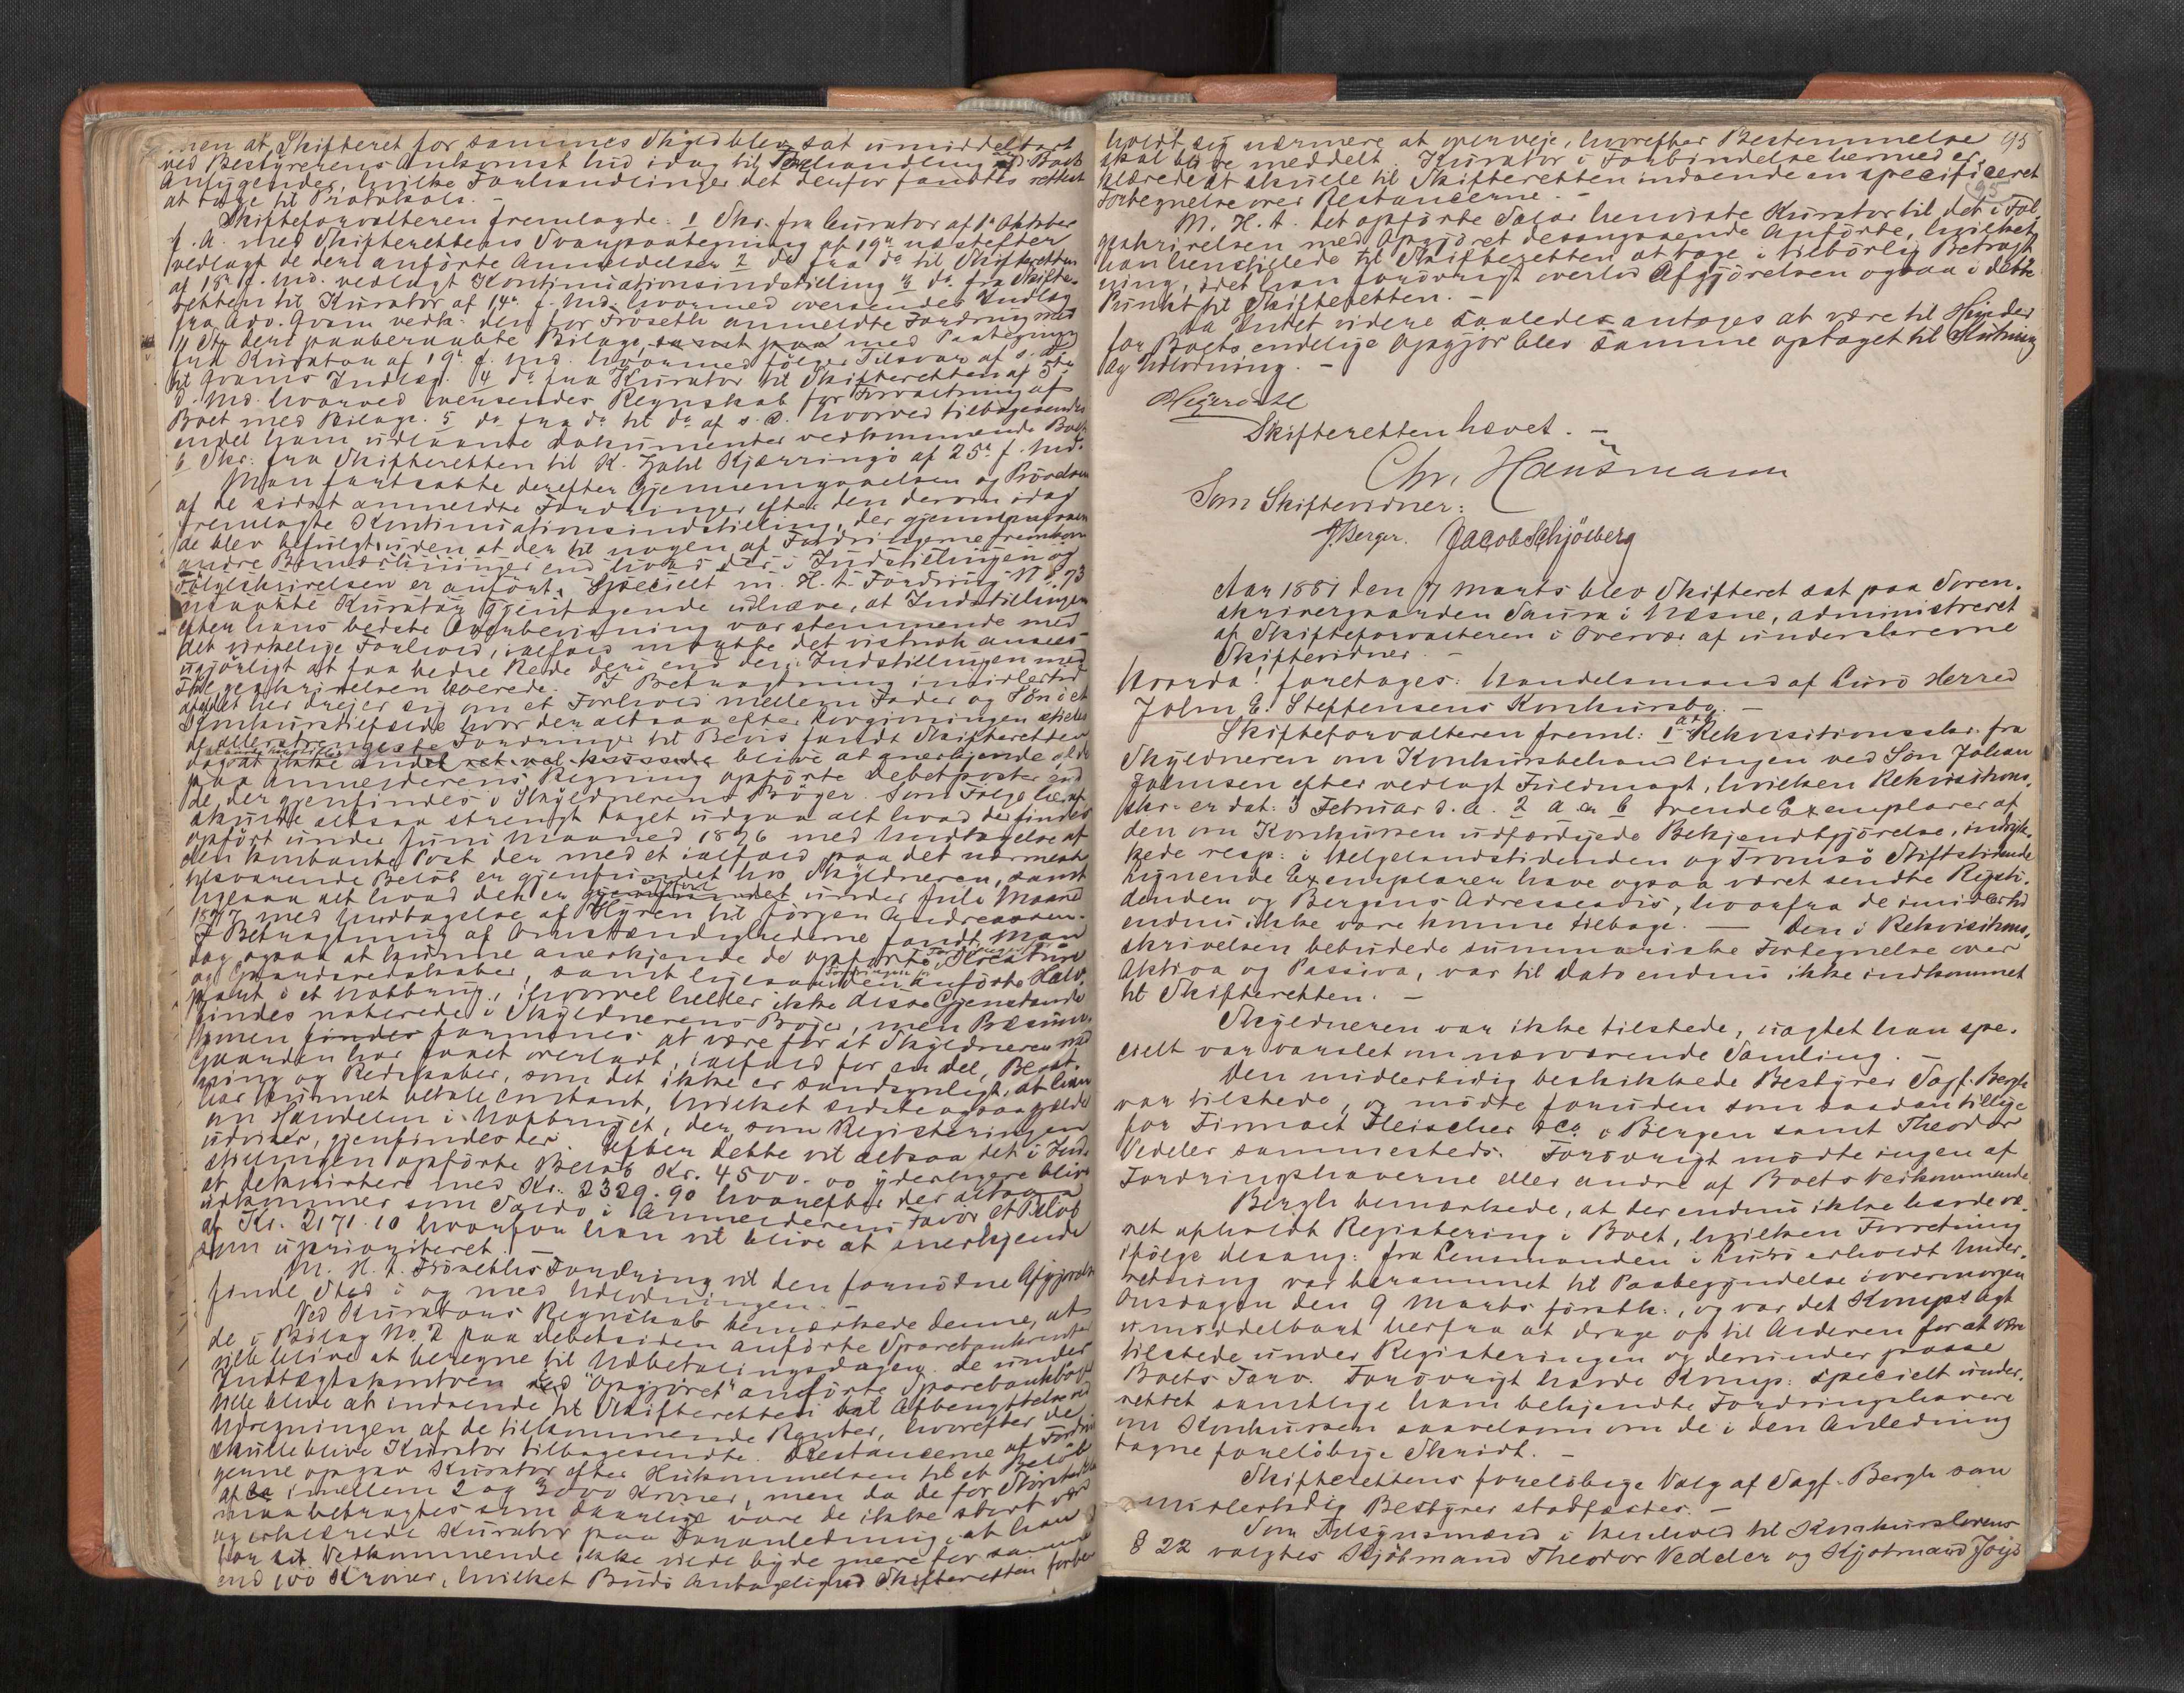 men at Skifteret for sammes Skyld blev sat umiddelbart
ved Bestyrerens Ankomst hid idag til Behandling af Boets
Anliggender, hvilke Forhandlinger det derfor fandtes rettest
at tage til Protokols. -
Skifteforvalteren fremlagde: 1 Skr. fra Curator af 1ste Oktober
f. A. med Skifterettens Svarpaategning af 19de næstefter
vedlagt de deri anførte Anmeldelser 2 do fra do til Skifteretten
af 18de f. Md. vedlagt Kontinuationsindstilling 3 do fra Skifte-
retten til Kurator af 14de f. Md. hvormed oversendes Indlæg
fra Adv. Qvam vedk: den for Fröseth anmeldte Fordring med
11 St. deri paaberaabte Bilage samt paa med Paategning
fra Kurator af 19de f. Md. hvormed følger Tilsvar af s. D.
til Qvams Indlæg. 4 do fra Kurator til Skifteretten af 5te
d. Md. hvorved oversendes Regnskab for Forvaltning af
Boet med Bilage. 5 do fra do til do af s. D. hvorved tilbagesendes
endel ham udlaante Dokumenter vedkommende Boet
6 Skr. fra Skifteretten til K. Zahl Kjærringö af 25de f. Md.
Man fortsatte derefter Gjennemgaaelsen og Prövelsen
af de sidst anmeldte Fordringer efter den derom idag
fremlagte Kontinuationsindstilling, der gjennemgaaen-
de blev befulgt uden at der til nogen af Fordringerne fremkom
andre Bemærkninger end hvad der i Indstillingen og
Følgeskrivelsen er anført. Specielt m. H. t. Fordring No 73
maatte Kurator gjentagende udhæve, at Indstillingen
efter hans bedste Overbevisning var stemmende med
det virkelige Forhold, ialfald maatte det vistnok ansees
ugjörligt at faa bedre Rede deri end den Indstillingen med
Følgeskrivelsen leverede. I Betragtning imidlertid
af at det her drejer sig om et Forhold mellem Fader og Søn i et
Konkurstilfælde hvor der altsaa efter Lovgivningen stilles
de allerstrengeste Fordringer til Bevis fandt Skifteretten
dog at ikke andet blive at anerkjende af de
paa Anmelderens Regning opförte Debetposter end
de, der gjenfindes i Skyldnerens Bøger. Som Følge heraf
skulde altsaa strengt taget udgaa alt hvad der findes
opfört under Juni Maaned 1876 med Undtagelse af
den kontante Post der med et ialfald paa det nærmeste
tilsvarende Beløb er gjenfundet hos Skyldneren, samt
ligesaa alt hvad der er opfört under Juli Maaned
1877 med Undtagelse af Hyren til Jørgen Andreassen.
I Betragtning af Omstændighederne fandt man
dog ogsaa at kunne anerkjende de opførte Kreature
og Gaardsredskaber, samt ligesaa den anførte Halv-
part i et Notbrug, ihvorvel heller ikke disse Gjenstande
findes noterede i Skyldnerens Bøger, men Præsum-
tionen findes formenes at være for at Skyldneren med
Gaarden har faaet overladt, ialfald for en del, Besæt-
ning og Redskaber, som det ikke er sandsynligt, at han
har kunnet betale contant, hvilket sidste ogsaa gjælder
om Handelen i Notbruget, der, som Registeringen
udviser, gjenfindes der. Efter dette vil altsaa det i Ind-
stillingen opførte Beløb Kr. 4500.00 yderligere blive
at dekortere med Kr. 2329.90 hvorefter der altsaa
udkommer som Saldo i Anmelderens Favör et Beløb
af Kr. 2171.10 hvorfor han vil blive at anerkjende
som uprioriteret. -
M. H. t. Fröseths Fordring vil den fornødne Afgjørelse
finde Sted i og med Udlodningen. -
Ved Kurators Regnskab bemærkede denne, at
de i Bilag No. 2 paa Debetsiden anførte Sparebankrenter
vilde blive at beregne til Udbetalingsdagen. De under
Indtægtskontoen ved "Opgjöret" anførte Sparebankbøger
vilde blive at indsende til Skifteretten til Afbenyttelse ved
Udregningen af de tilkommende Renter, hvorefter de
skulle blive Kurator tilbagesendte. Restancerne af Fordrin-
gerne opgav Kurator efter Hukommelsen til et Beløb
af ca imellem 2 og 3000 Kroner, men da de for Störstedelen
maa betragtes som daarlige vare de ikke stort værd
og erklærede Kurator paa Foranledning, at han
for sit Vedkommende ikke vilde byde mere for samme
end 100 Kroner, hvilket Buds Antagelighed Skifteretten forbe-
holdt sig nærmere at overveje, hvorefter Bestemmelse
95
skal blive meddelt. Kurator i Forbindelse hermed er-
klærede at skulle til Skifteretten indsende en specificeret
95
Fortegnelse over Restancerne. -
M. H. t. det opførte Salær henviste Kurator til det i Føl-
geskrivelsen med Opgjöret desangaaende Anförte, hvilket
han henstillede til Skifteretten at tage i tilbørlig Betragt-
ning, idet han forövrigt overlod Afgjörelsen ogsaa i dette
Punkt til Skifteretten. -
Da Intet videre saaledes antoges at være til Hinder
for Boets endelige Opgjør blev samme optaget til Slutning
og Udlodning. -
Skifteretten hævet. -
Chr. Hausmann
Som Skiftevidner:
J. Berger. Jacob Schjølberg
Aar 1881 den 7 Marts blev Skifteret sat paa Soren-
skrivergaarden Saura i Næsne, administreret
af Skifteforvalteren i Overvær af underskrevne
Skiftevidner. -
Hvorda: foretages: Handelsmand af Lurö Herred
John E. Steffensens Konkursbo. -
Skifteforvalteren freml: 1 a & b Rekvisitionsskr. fra
Skyldneren om Konkursbehandlingen ved Søn Johan
Johnsen efter vedlagt Fuldmagt, hvilken Rekvisitions-
skr. er dat: 3 Februar d. A. 2 a og b trende Exemplarer af
den om Konkursen udfærdigede Bekjendtgjörelse, indryk-
kede resp: i Helgelandstidenden og Tromsö Stiftstidende
Lignende Exemplarer have ogsaa været sendte Rigsti-
denden og Bergens Adresseavis, hvorfra de imidlertid
endnu ikke vare komne tilbage. - Den i Rekvisitions-
skrivelsen bebudede summariske Fortegnelse over
Aktiva og Passiva, var til Dato endnu ikke indkommet
til Skifteretten. -
Skyldneren var ikke tilstede, uagtet han spe-
cielt var varslet om nærværende Samling. -
Den midlertidig beskikkede Bestyrer Sagf. Bergh
var tilstede, og mødte foruden som saadan tillige
for Firmaet Fleischer & Co. i Bergen samt Theodor
Vedeler sammesteds. Forövrigt mødte ingen af
Fordringshaverne eller andre af Boets Vedkommende.
Bergh bemærkede, at der endnu ikke havde væ-
ret afholdt Registering i Boet, hvilken Forretning
ifölge desang: fra Lensmanden i Lurö erholdt Under-
retning var berammet til Paabegyndelse iovermorgen
Onsdagen den 9 Marts förstk:, og var det Komp: Agt
umiddelbart herfra at drage op til Alderen for at være
tilstede under Registeringen og derunder passe
Boets Tarv. Forövrigt havde Komp: specielt under-
rettet samtlige ham bekjendte Fordringshavere
om Konkursen saavelsom om de i den Anledning
tagne foreløbige Skridt. -
Skifterettens foreløbige Valg af Sagf. Bergh som
midlertidig Bestyrer stadfæstes. -
Som Tilsynsmænd i Henhold til Konkurslovens
§ 22 valgtes Kjøbmand Theodor Vedeler og Kjøbmand Joys